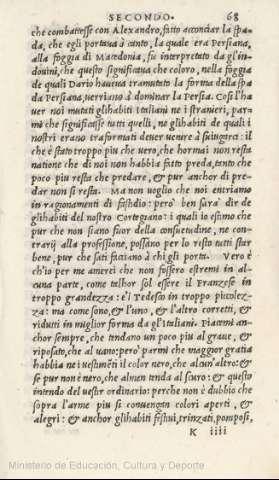 SECONDO. 68
che combattesse con Alexandro, fatto acconciar la spa-
da, che egli portaua à canto, la quale era Persiana,
alla foggia di Macedonia, fu interpretato da gl'in-
douini, che questo significaua che coloro, nella foggia
de quali Dario haueua tramutato la forma della spa
da Persiana, verriano à dominar la Persia. Cosi l'ha
uer noi mutati glihabiti italiani ne i stranieri, par-
mi che significasse tutti quelli, ne glihabiti de quali i
nostri erano trasformati deuer uenire à sciugarci: il
che è stato troppo piu che uero, che hormai non resta
natione che di noi non habbia fatto preda, tanto che
poco piu resta che predare, & pur anchor di pre-
dar non si resta. Ma non uoglio che noi entriamo
in ragionamenti di fastidio: però ben sarà dir de
glihabiti del nostro Cortegiano: i quali io estimo che
pur che non siano fuor della consuetudine, ne con-
trarij alla professione, possano per lo resto tutti star
bene, pur che sati facciano à chi gli porta. Vero è
ch'io per me amerei che non fossero estremi in al-
cuna parte, come talhor sòl essere il Franzese in
troppo grandezza: e'l Tedesco in troppo picolez-
za: ma come sono, & l'uno, & l'altro corretti, &
ridutti in miglior forma da gl'italiani. Piacemi an-
chor sempre, che tendano un poco piu al graue, &
riposato, che al uano: però parmi che maggior gratia
habbia ne i uestimēti il color nero, che alcun'altro: &
se pur non è nero, che almen tenda al scuro: & questo
intendo del uestir ordinario: perche non è dubbio che
sopra l'arme piu si conuengan colori aperti, &
alegri: & anchor glihabiti festiui, trinzati, pomposi,
K iiii
Ministerio de Educación, Cultura y Deporte